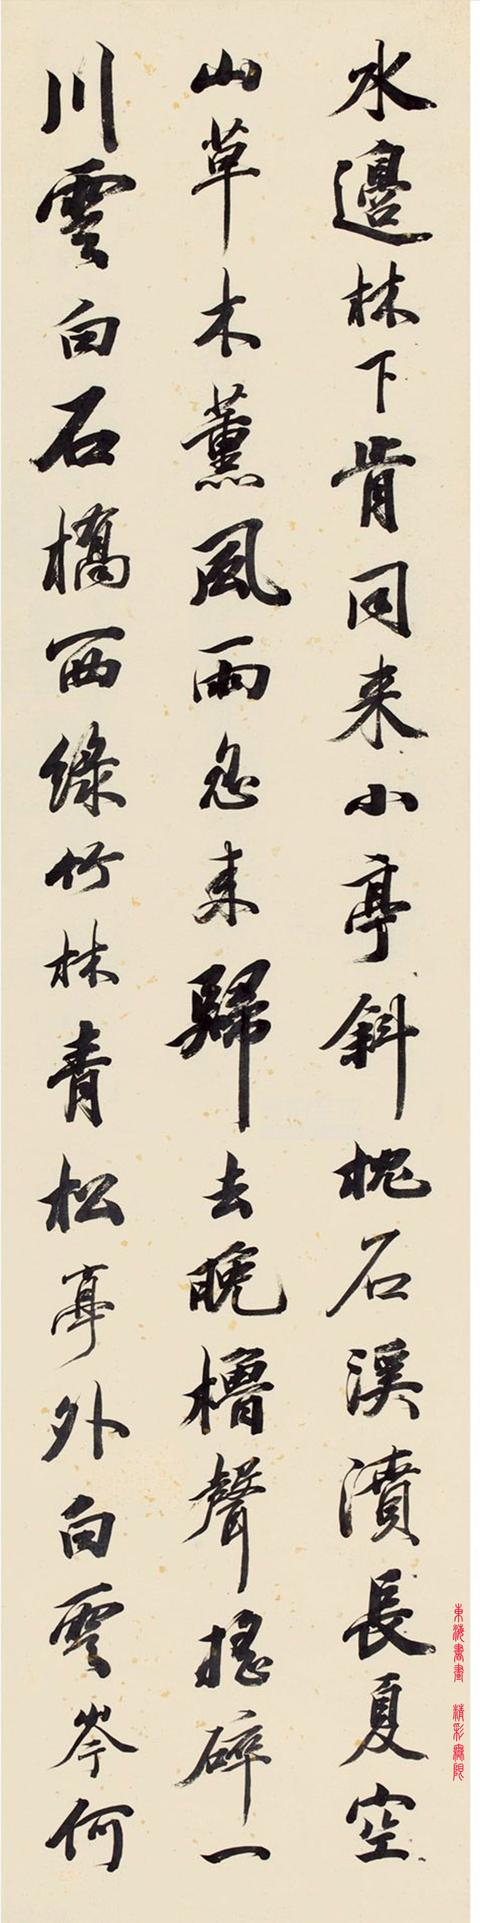 水邊林下肯同来小亭斜桄石溪濆長夏空
山草木薰風雨忽来歸去晚櫓聲搖碎一
川雲白石橋西綠竹林青松亭外白雲岑何
東海書畫 精彩無限